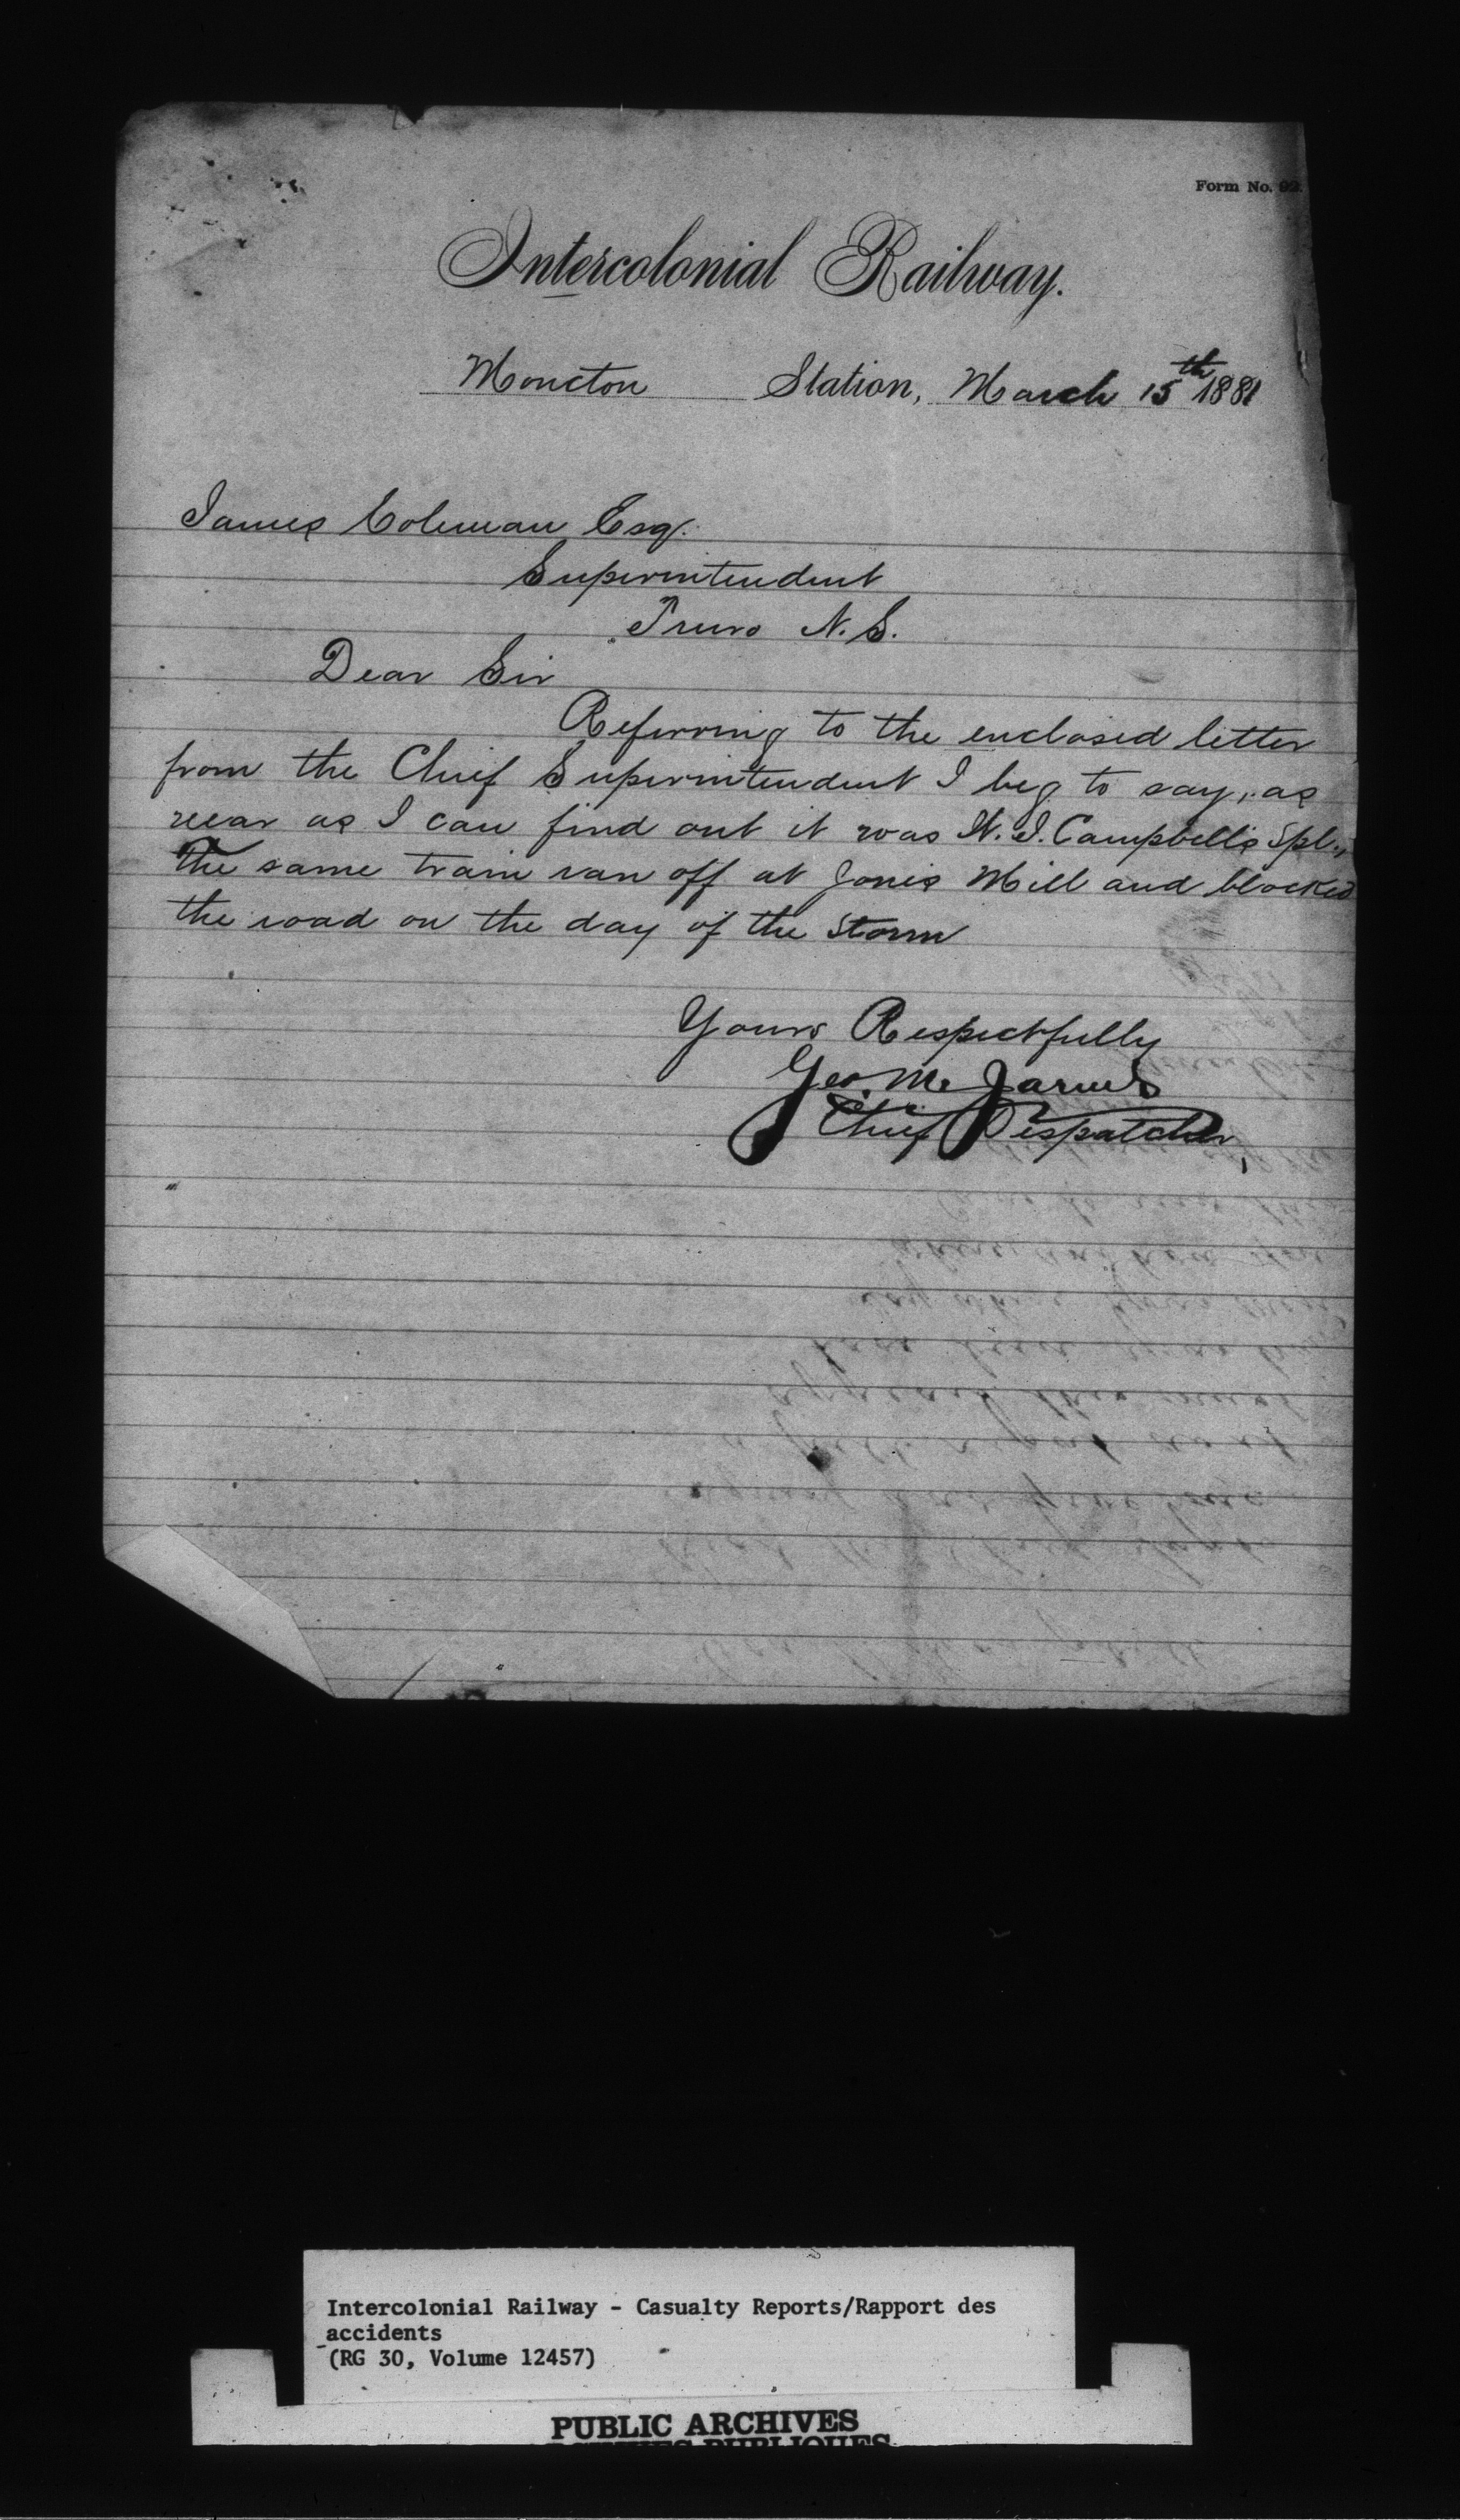 Form No. 92.
Intercolonial Railway.
Moncton Station, March 15th 1881
James Coleman Esq.
Superintendent
Truro N.S.
Dear Sir
Referring to the enclosed letter
from the Chief Superintendent I beg to say, as
near as I can find out it was W. J. Campbell's Spl.,
the same train ran off at Jones Mill and blocked
the road on the day of the storm
Yours Respectfully
Geo. M. Jarvis
Chief Dispatcher,
Intercolonial Railway - Casualty Reports/Rapport des
accidents
(RG 30, Volume 12457)
PUBLIC ARCHIVES
ARCHIVES PUBLIQUES